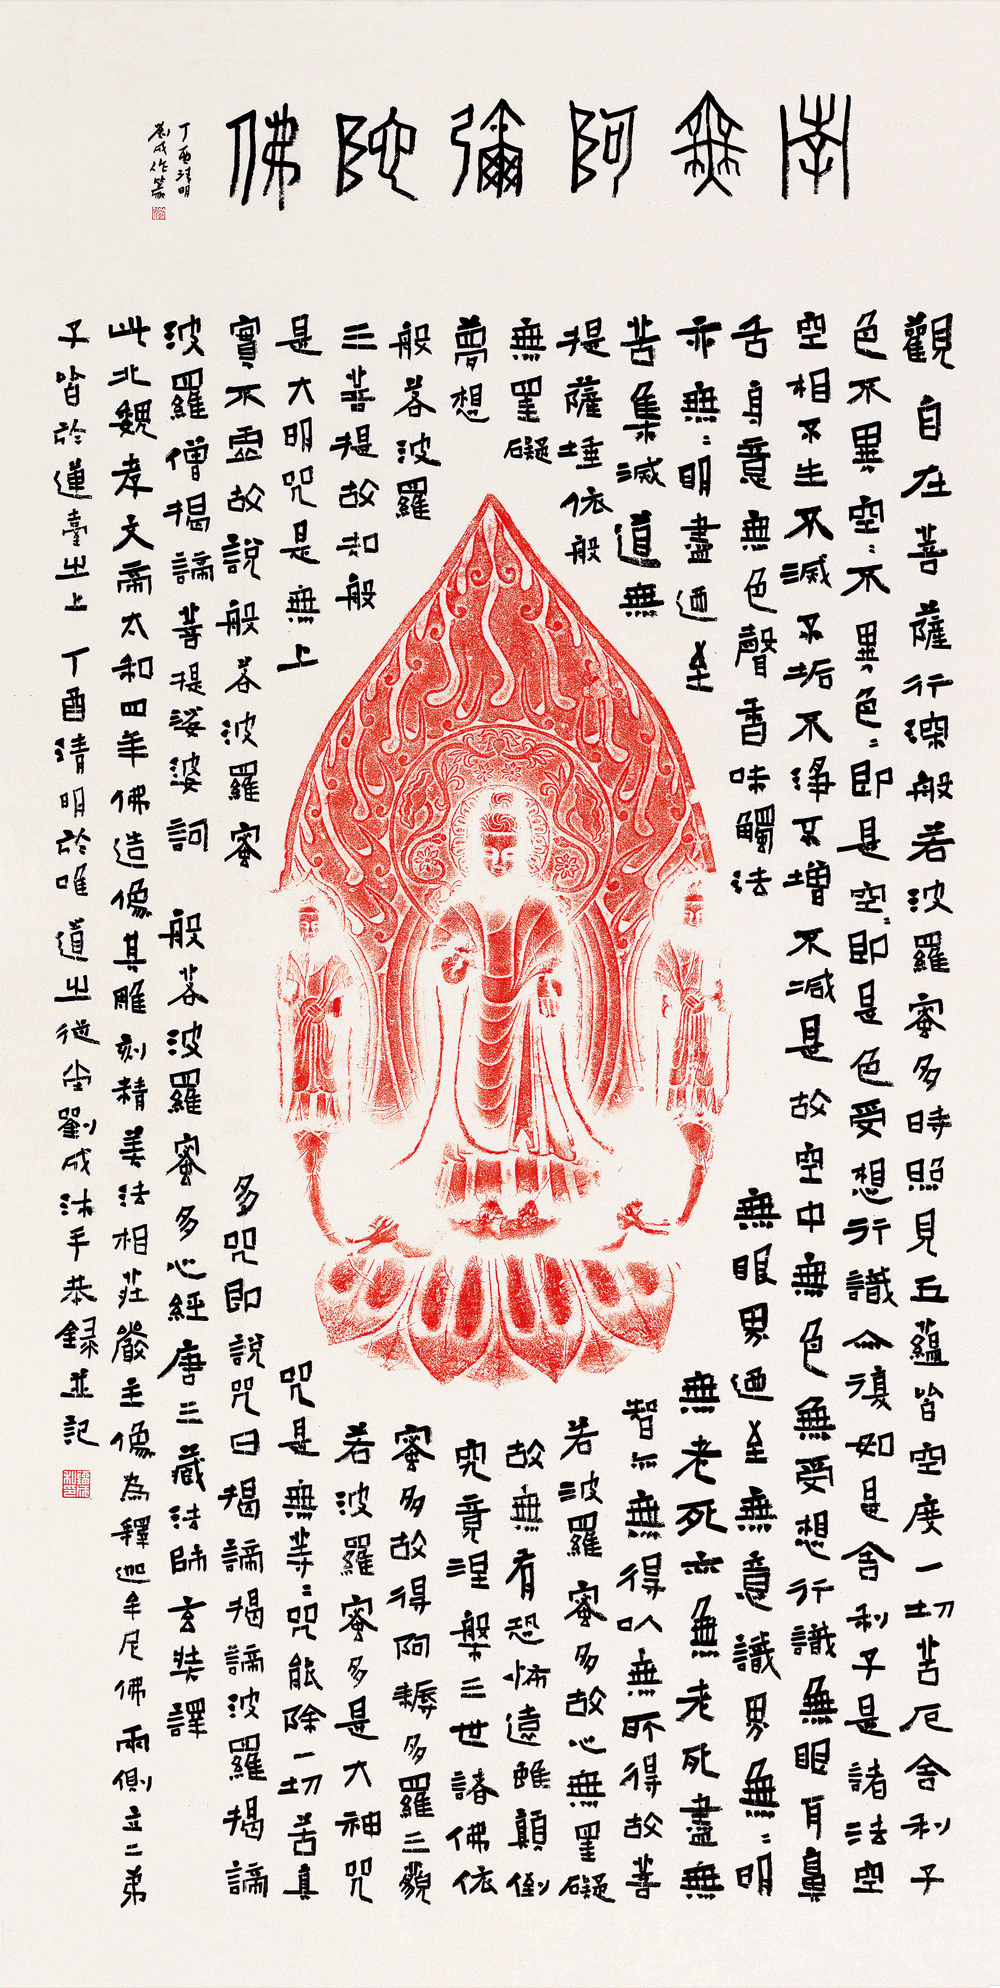 南無阿彌陀佛
丁酉清明
劉成作篆
觀自在菩薩行深般若波羅蜜多時照見五蘊皆空度一切苦厄舍利子
色不異空〻不異色〻即是空〻即是色受想行識亦復如是舍利子是諸法空
空相不生不滅不垢不淨不增不減是故空中無色無受想行識無眼耳鼻
舌身意無色聲香味觸法無眼界迺至無意識界無〻明
亦無〻明盡迺至無老死亦無老死盡無
苦集滅道無智亦無得以無所得故菩
提薩埵依般若波羅蜜多故心無罣礙
無罣礙故無有恐怖遠離顛倒
夢想究竟涅槃三世諸佛依
般若波羅蜜多故得阿耨多羅三藐
三菩提故知般若波羅蜜多是大神咒
是大明咒是無上咒是無等〻咒能除一切苦真
實不虛故說般若波羅蜜多咒即說咒曰揭諦揭諦波羅揭諦
波羅僧揭諦菩提娑婆訶 般若波羅蜜多心經唐三藏法師玄奘譯
此北魏孝文帝太和四年佛造像其雕刻精美法相莊嚴主像為釋迦牟尼佛兩側立二弟
子皆於蓮臺之上 丁酉清明於唯道之從堂劉成沐手恭錄並記